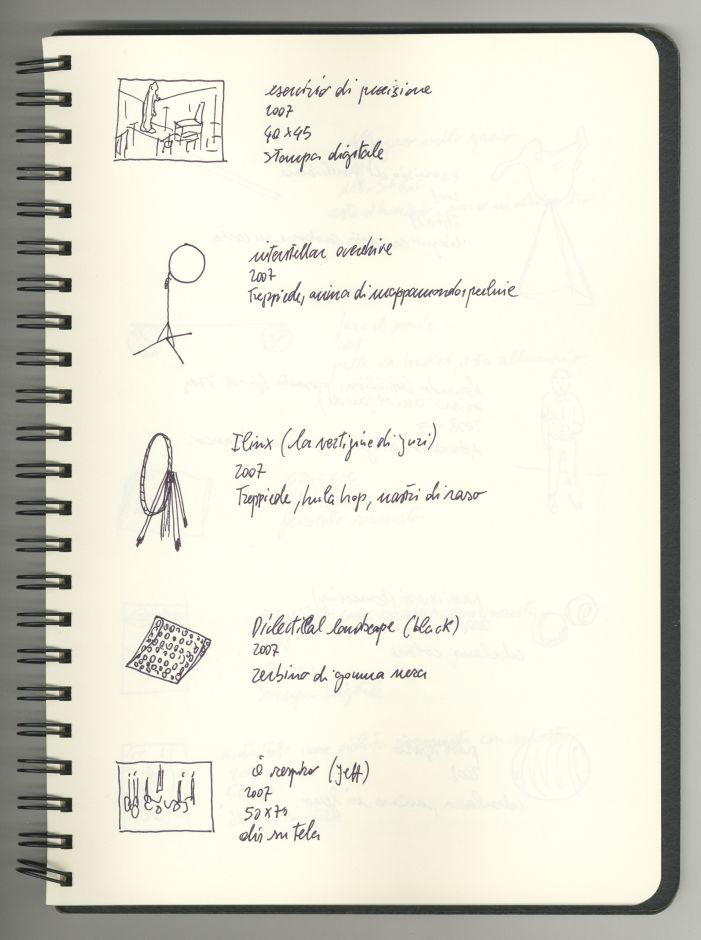 esercizio di precisione
2007
40 x 45
stampa digitale
interstellar overdrive
2007
Treppiede, anima di mappamondo
Ilinx (la vertigine di Juri)
2007
Treppiede, hula hop, nastri di raso
Dialectical landscape (black)
2007
zerbino di gomma nera
respiro (Jeff)
2007
50 x 70
olio su tela